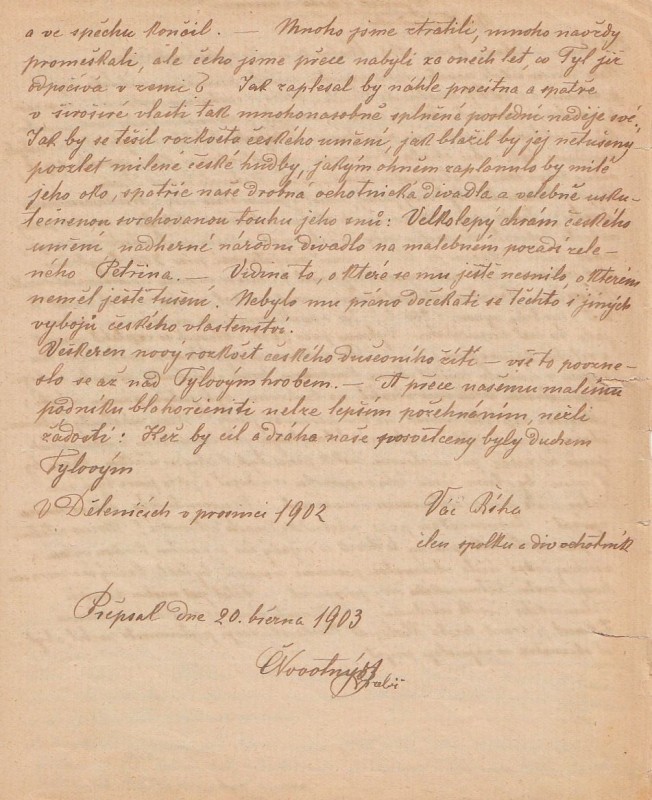 a ve spěchu končil. — Mnoho jsme ztratili, mnoho navždy
promeškali, ale čeho jsme přece nabyli za oněch let, co Tyl již
odpočívá v zemi? Jak zaplesal by náhle procitna a spatře
v širošíré vlasti tak mnohonásobně splněné poslední naděje své.
Jak by se těšil rozkvětu českého umění, jak blažil by jej netušený
povzlet milené české hudby, jakým ohněm zaplanulo by milé
jeho oko, spatříc naše drobná ochotnická divadla a velebně usku-
tečnenou svrchovanou touhu jeho snů: Velkolepý chrám českého
umění nádherné národní divadlo na malebném pozadí zele-
ného Petřína. — Vidina to, o které se mu ještě nesnilo, o kterém
neměl ještě tušení. Nebylo mu přáno dočekati se těchto i jiných
vybojů českého vlastenství.
Veškeren nový rozkvět českého duševního žití — vše to povzne-
slo se až nad Tylovým hrobem. — A přece našemu malému
podniku blahořečiniti nelze lepším požehnáním, nežli
žádostí: Kéž by cíl a dráha naše posvětceny byly duchem
Tylovým
V Dětenicích v prosinci 1902
Vác Říha
člen spolku a div ochotník
Přepsal dne 20. března 1903
Novotný